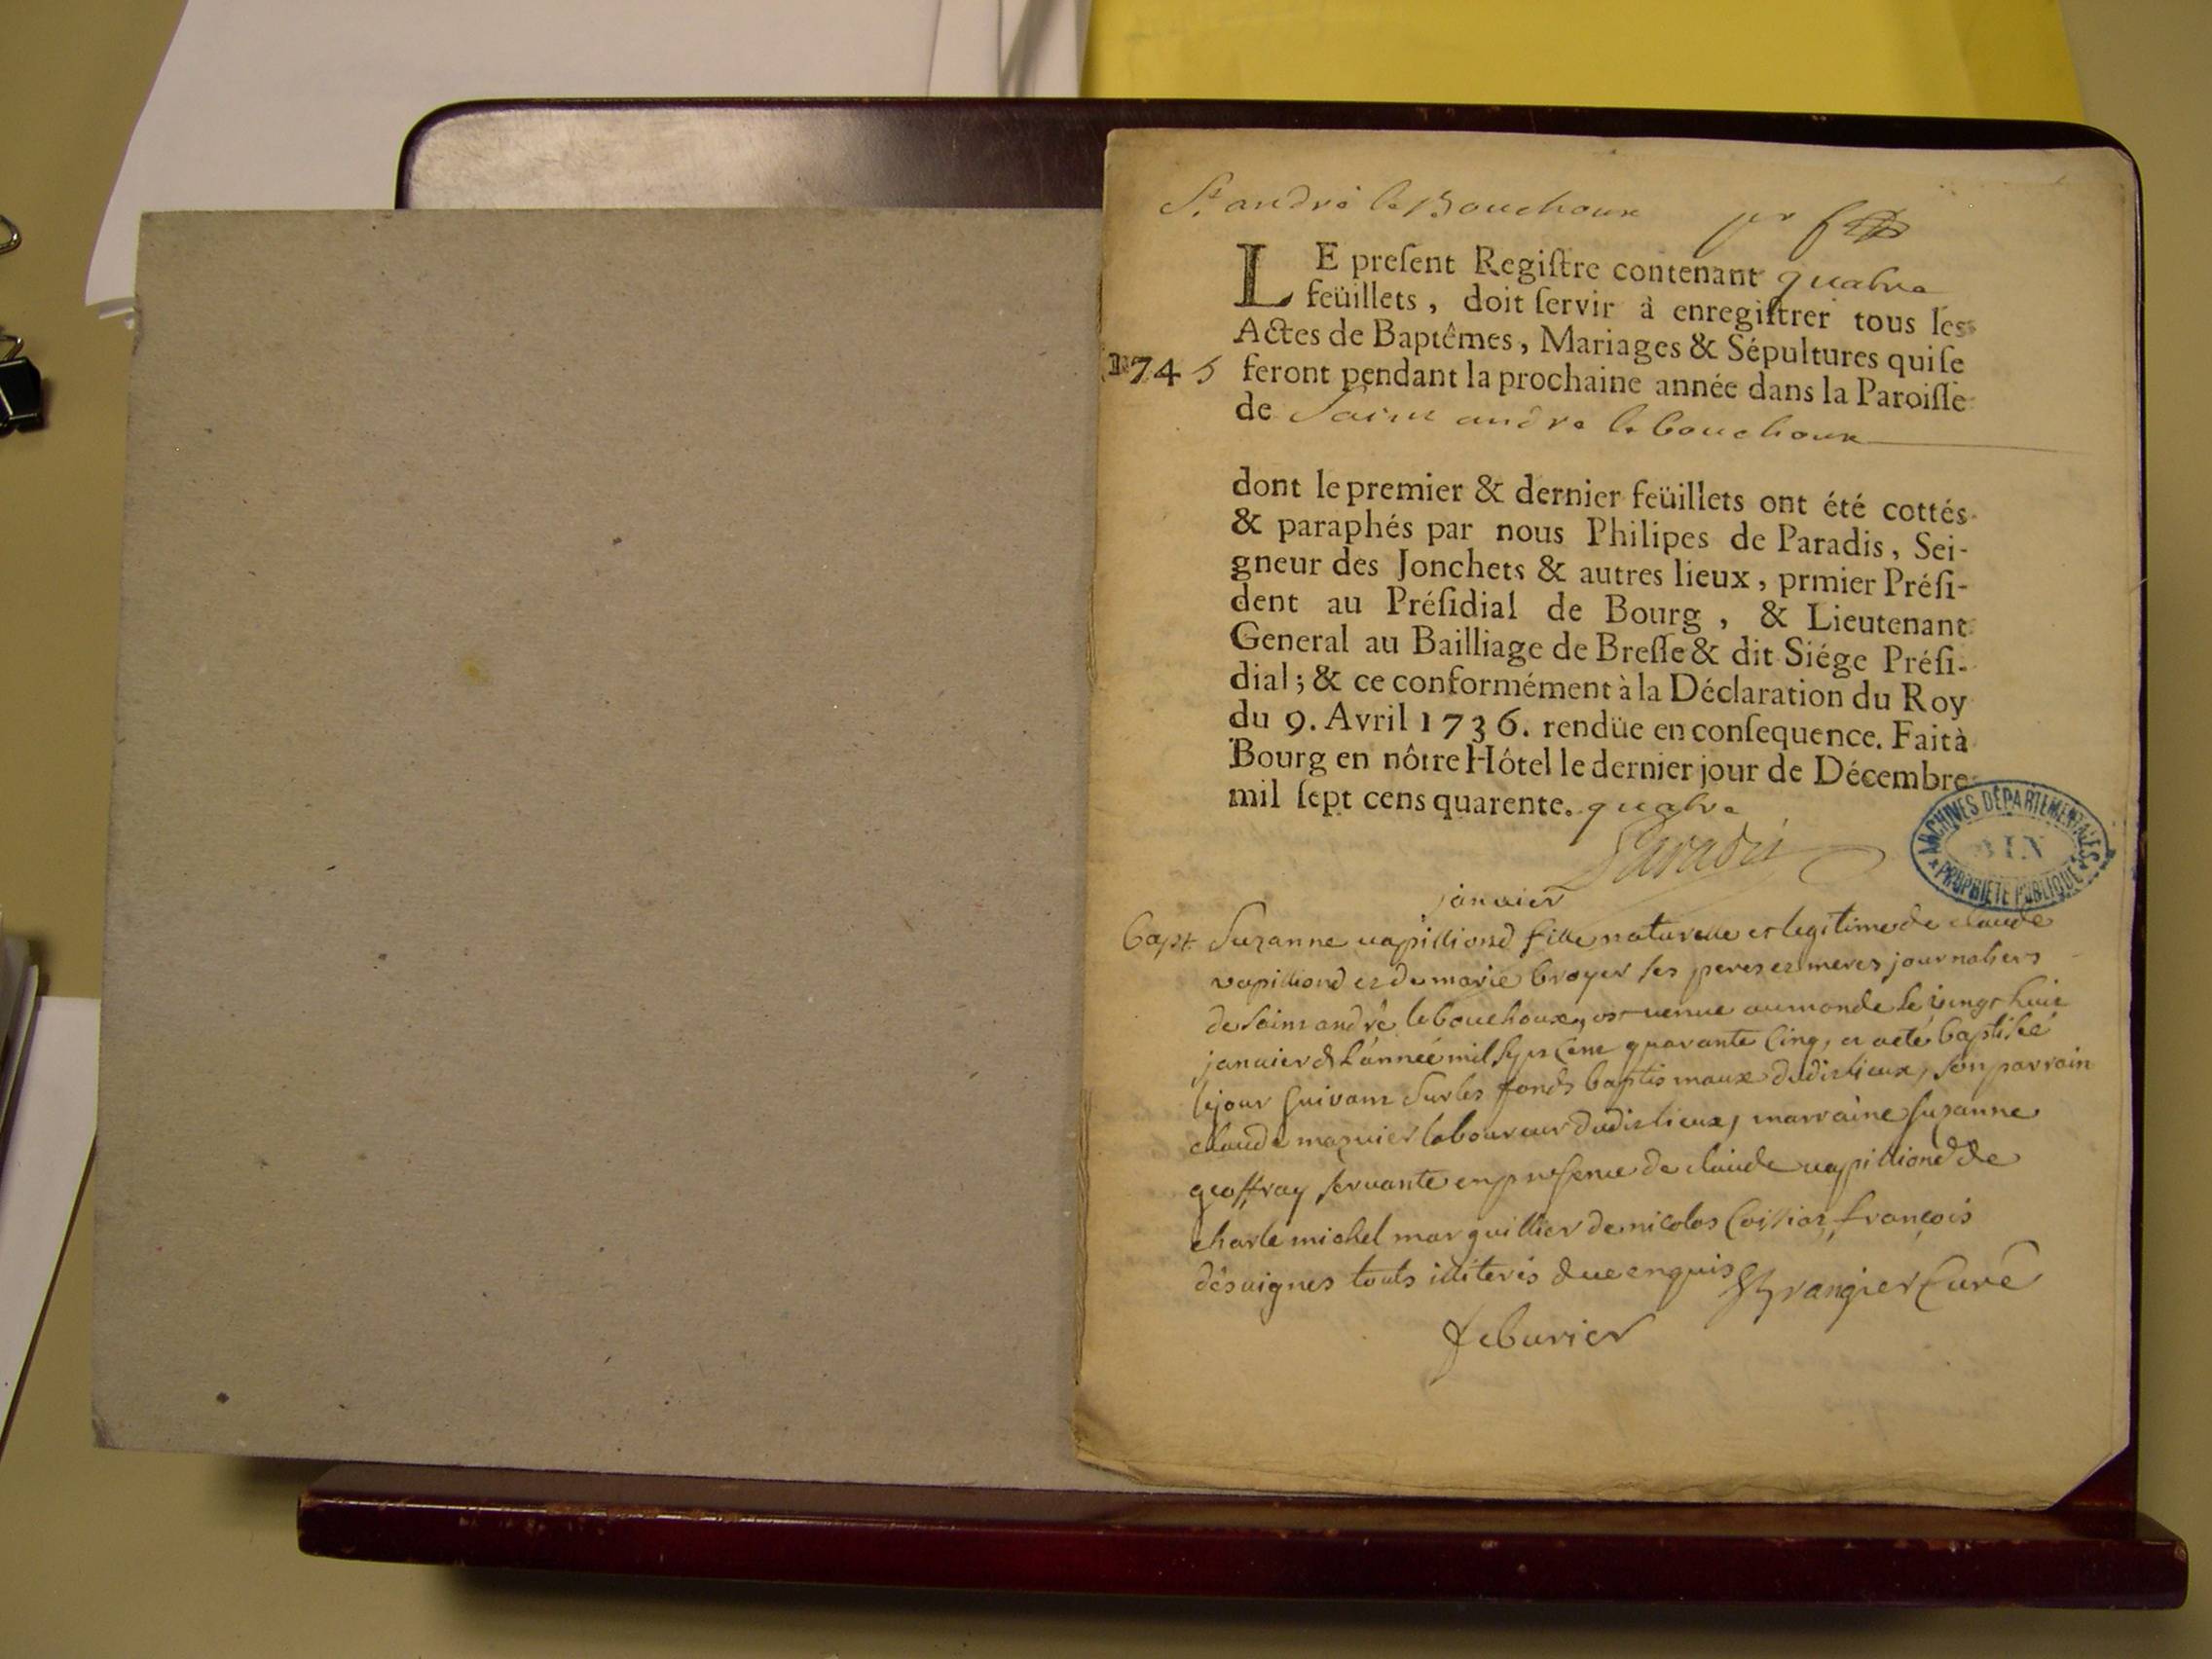 St andré le Bouchoux
LE preſent Regiſtre contenant quatre
feüillets, doit ſervir à enregiſtrer tous les
Actes de Baptêmes, Mariages & Sépultures qui ſe
1745 feront pendant la prochaine année dans la Paroiſſe
de Saint andre le bouchoux
dont le premier & dernier feüillets ont été cottés
& paraphés par nous Philipes de Paradis, Sei-
gneur des Jonchets & autres lieux, prmier Préſi-
dent au Préſidial de Bourg, & Lieutenant
General au Bailliage de Breſſe & dit Siége Préſi-
dial; & ce conformément à la Déclaration du Roy
du 9. Avril 1736. rendüe en conſequence. Fait à
Bourg en nôtre Hôtel le dernier jour de Décembre
mil ſept cens quarente. quatre
Paradis
ARCHIVES DÉPARTEMENTALES
AIN
PROPRIÉTÉ PUBLIQUE
janvier
bapt Suzanne uapilliond fille naturelle et legitime de claude
vapilliond et de marie broyer ses peres et meres journaliers
de saint andré le bouchoux, est venue au monde le vingt huit
janvier de l'année mil sept cent quarante cinq, et a eté baptiseé
le jour suivant sur les fonds baptismaux dudit lieux, son parrain
claude mazuier laboureur dudit lieux, marraine suzanne
geoffray servante en presence de claude uapilliond de
charle michel marguillier de nicolas françois
désuignes touts illiteris enquis Grangier Curé
feburier